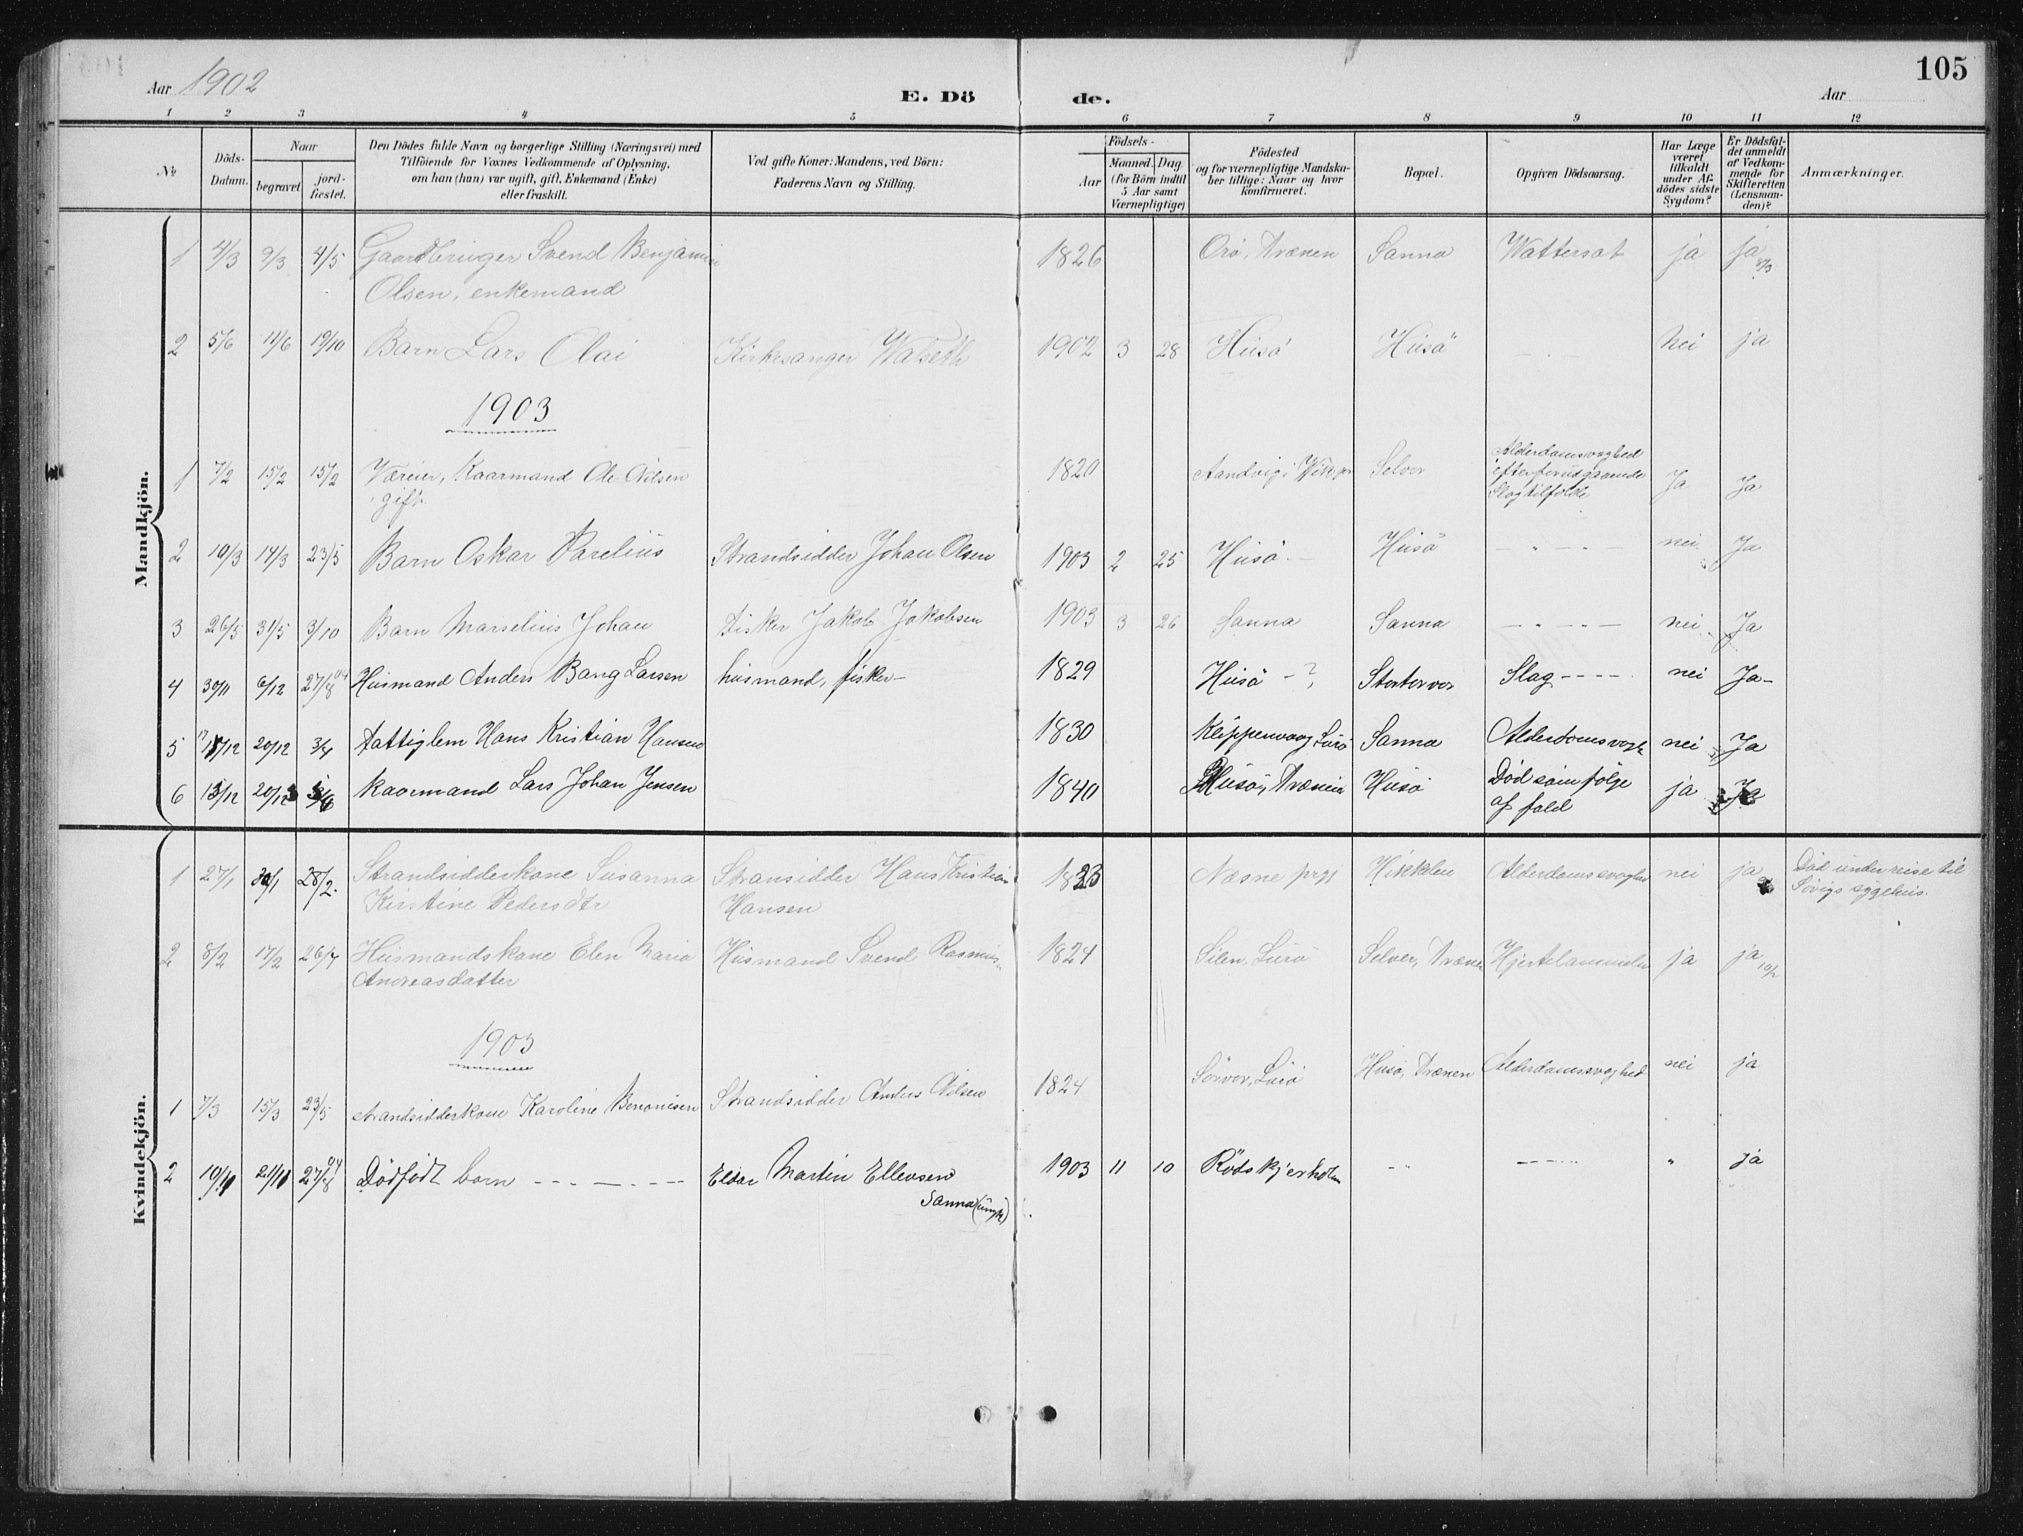 105
Aar 1902
E. Dö
de.
Aar
1 2 3 4 5 6 7 8 9 10 11 12
№
Döds-Datum.
Naar
begravet
jord-fæstet.
Den Dödes fulde Navn og borgerlige Stilling (Næringsvei) med
Tilföiende for Voxnes Vedkommende af Oplysning,
om han (hun) var ugift, gift, Enkemand (Enke)
eller fraskilt.
Ved gifte Koner: Mandens, ved Börn:
Faderens Navn og Stilling.
Födsels-
Aar
Maaned. Dag
(for Börn indtil
5 Aar samt
Værnepligtige)
Födested
og for værnepligtige Mandska-
ber tillige: Naar og hvor
konfirmeret.
Bopæl.
Opgiven Dödsaarsag.
Har Læge
været
tilkaldt
under Af-
dödes sidste
Sygdom?
Er Dödsfal-
det anmeldt
af Vedkom-
mende for
Skifteretten
(Lensman-
den)?
Anmærkninger.
Mandkjön.
1 4/3 9/3 4/5 Gaardbruger Svend Benjamin 1826 Orö, Trænen Sanna Wattersot ja ja 8/3
Olsen, enkemand
2 5/6 11/6 19/10 Barn Lars Olai Kirkesanger Watseth 1902 3 28 Husö Husö - - nei ja
1903
1 7/2 15/2 15/2 Væreier, Kaarmand Ole Nilsen 1820 Sandvig i Selvær Alderdomssvaghed
gift. efter forudgaaende Ja Ja
Slagtilfælde
2 10/3 14/3 23/5 Barn Oskar Parelius Strandsidder Johan Olsen 1903 2 25 Husö Husö - - - nei Ja
3 26/5 31/5 3/10 Barn Marselius Johan Fisker Jakob Jakobsen 1903 3 26 Sanna Sanna - - - nei Ja
4 30/11 6/12 27/8 04 Husmand Anders Bang Larsen husmand, fisker - 1829 Husö - ? Slag - - - nei Ja -
5 17/12 20/12 3/4 Fattiglem Hans Kristian Hansen 1830 Kleppenvaag, Lurö Sanna Alderdomsvagh nei Ja
6 13/12 20/12 Kaarmand Lars Johan Jensen 1840 Husöy, Trænen Husö Död som fölge ja Ja
af fald
Kvindekjön.
1 27/1 30/1 28/2. Strandsidderkone Susanna Stransidder Hans Kristian 1823 Næsne prgj Hikklen Alderdomssvaghed nei ja Död under reise til
Kirstine Pedersdtr Hansen Sövigs sygehus.
2 8/2 17/2 26/7 Husmandskone Elen Maria Husmand Svend Rasmus 1824 Silen, Lurö Selvær, Trænen Hjertelammelse ja ja 10/2
Andreasdatter
1903
1 7/3 15/3 23/5 Strandsidderkone Karoline Benonisen Strandsidder Anders Nilsen 1824 Sörvær, Lurö Husö, Trænen Alderdomssvaghed nei ja
2 10/11 21/11 27/8 04 Dödfödt barn - - - - - Edvar Martin Ellevsen 1903 11 10 Rödskjerholm - - - - - " ja
Sanna (ungk)